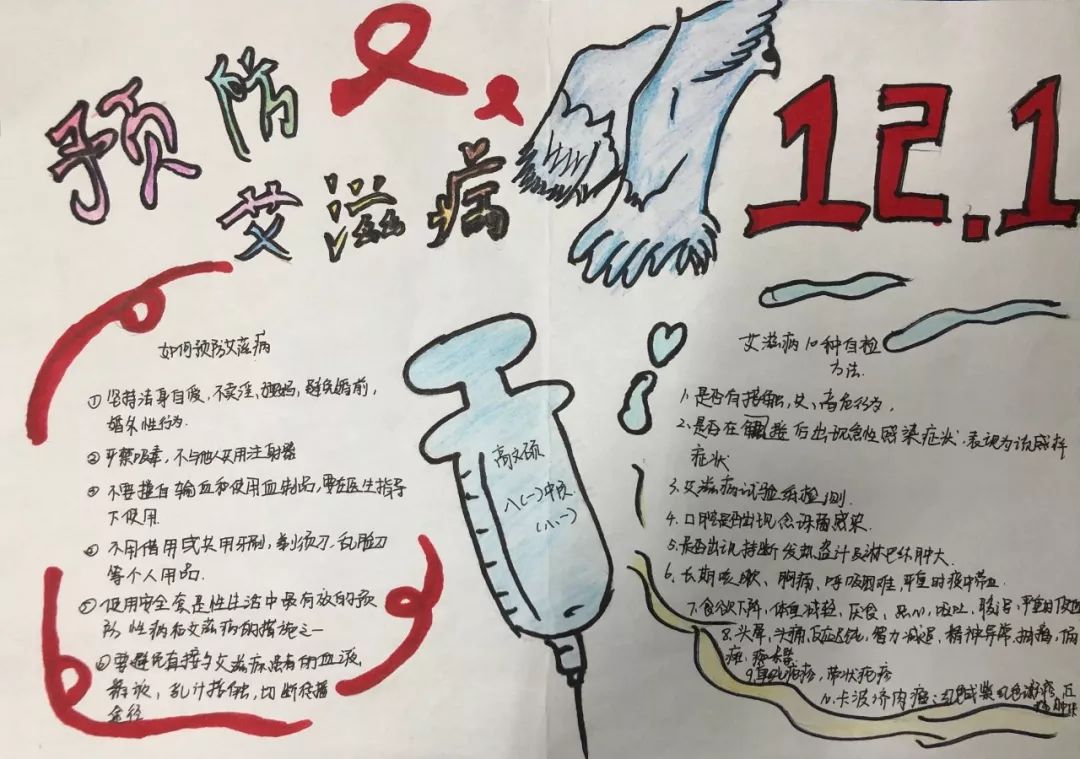 预防
艾滋病
12.1
如何预防艾滋病
① 坚持洁身自爱,不卖淫,嫖娼,避免婚前,
婚外性行为.
② 严禁吸毒,不与他人共用注射器
③ 不要擅自输血和使用血制品,要在医生指导
下使用.
④ 不用借用或共用牙刷,剃须刀,刮脸刀
等个人用品.
⑤ 使用安全套是性生活中最有效的预
防性病和艾滋病的措施之一
⑥ 要避免直接与艾滋病患者的血液,
乳汁接触,切断传播
途径
八(一)中队
(八、一)
艾滋病10种自检
方法.
1.是否有接触,史、高危行为.
2.是否在接后出现急性感染症状,表现为流感样
症状
3.艾滋病试验检测.
4.口腔是否出现念珠菌感染.
5.是否出现持断发热盗汗及淋巴体肿大.
6.长期咳嗽、胸痛,呼吸困难,严重时痰中带血.
7.食欲下降,体重减轻、厌食、恶心,呕吐,腹泻,严重时便血
8.头晕,头痛,反应迟钝,智力减退,精神异常,抽搐,偏
瘫,痴
9.单纯疱疹,带状疱疹
卡波济肉瘤: